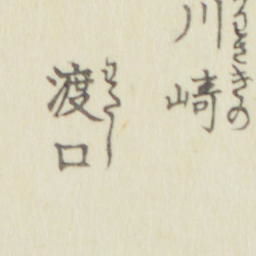 川崎
さきの
渡口
わたし